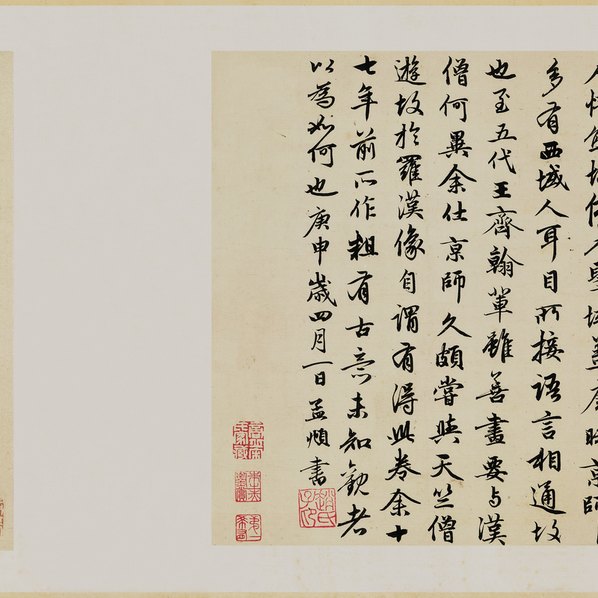 人情態故優入聖域蓋唐時京師
多有西域人耳目所接語言相通故
也至五代王齊翰輩雖善畫要與漢
僧何異余仕京師久頗嘗與天竺僧
遊故於羅漢像自謂有得此卷余十
七年前所作粗有古意未知觀者
以為如何也庚申歲四月一日孟頫書
趙氏子昂